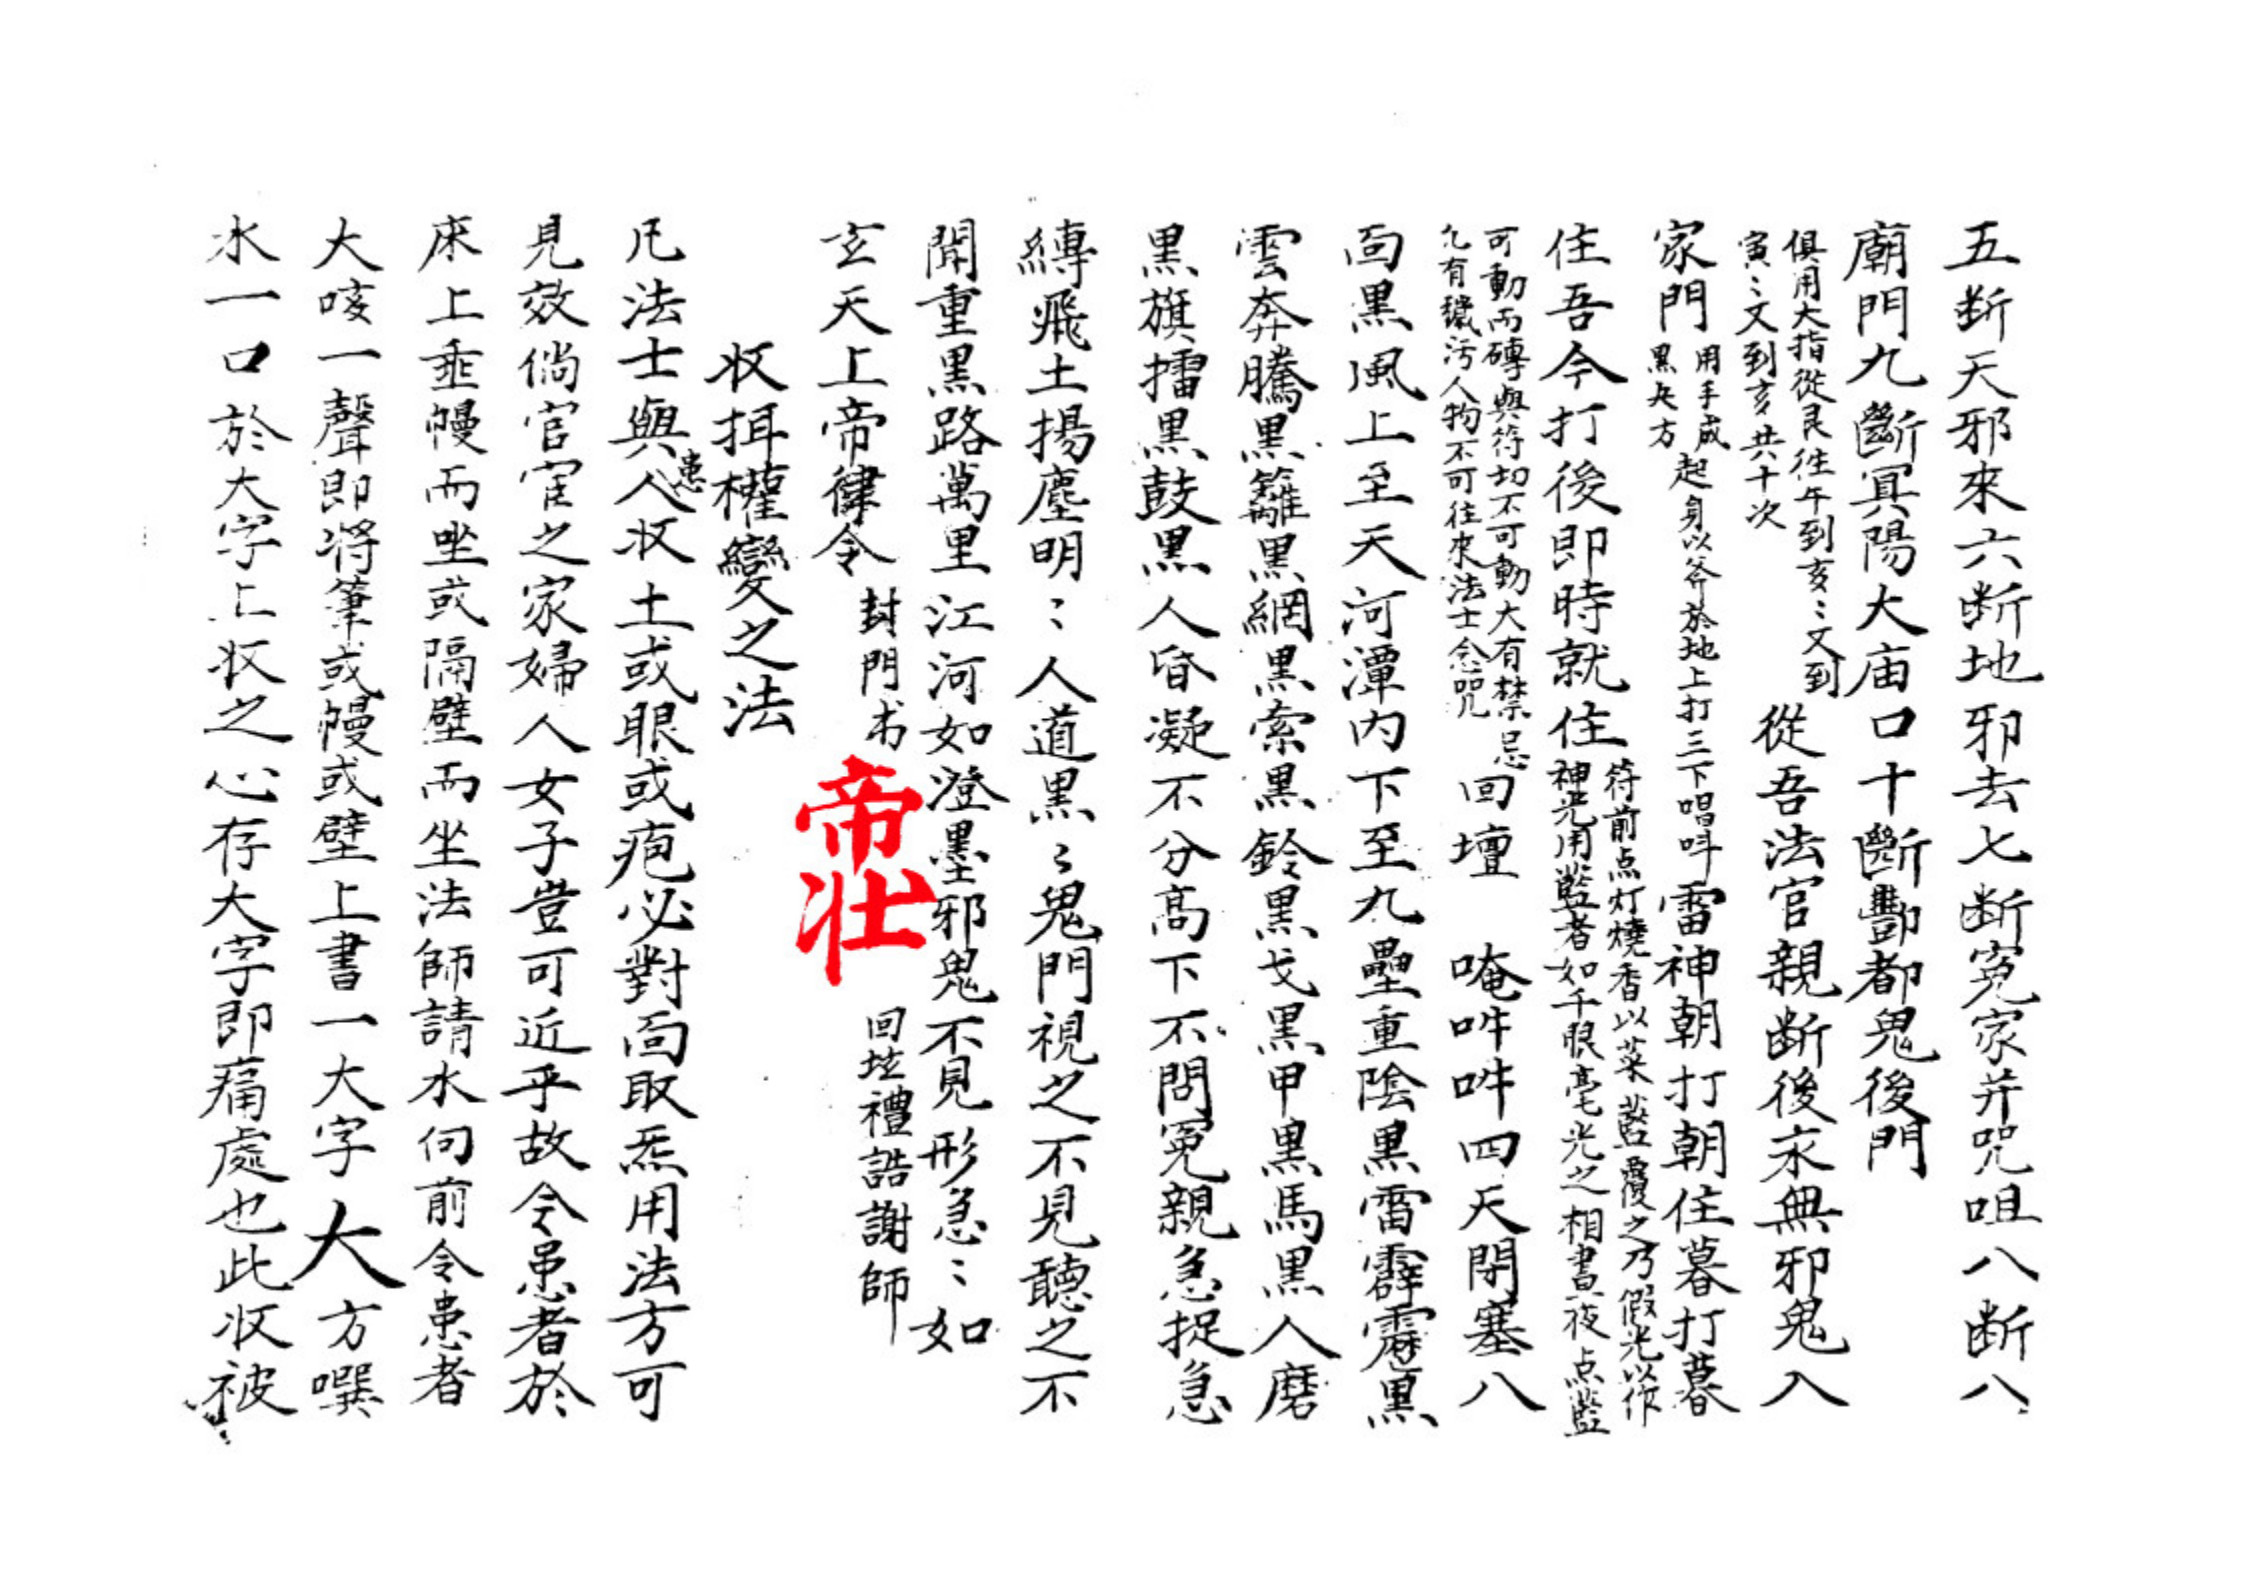 五断天邪來六断地邪去七断冤家并咒咀八断八
廟門九斷冥陽大庙口十斷酆都鬼後門
俱用大指從艮徃午到亥〻文到
寅〻文到亥共十次
從吾法官親断後永無邪鬼入
家門
用手成
黑央方
起身以斧於地上打三下唱呌
雷神朝打朝住暮打暮
住吾今打後即時就住
符前点灯燒香以菜藍覆之乃假光以作
神光用藍者如千眼毫光之相晝夜点藍
可動而磚與符切不可動大有禁忌
凢有穢污人物不可往來法士念咒
回壇 唵吽吽四天閉塞八
靣黒風上至天河潭内下至九壘重陰黒雷霹靂黒
雲奔騰黒籬黒網黒索黒鈴黒戈黒甲黒馬黒人磨
黒旗擂黒鼓黒人昏凝不分髙下不問冤親急捉急
縛飛土揚塵明〻人道黒〻鬼門視之不見聽之不
聞重黒路萬里江河如澄墨邪鬼不見形急〻如
玄天上帝律令
封門术
帝壮
回坛禮誥謝師
収挕權變之法
凡法士與患人収土或眼或疱必對靣取炁用法方可
見效倘官宦之家婦人女子豈可近乎故令患者於
床上垂幔而坐或隔壁而坐法師請水向前令患者
大咳一聲即将筆或幔或壁上書一大字大方噀
水一口於大字上収之心存大字即痛處也此収被